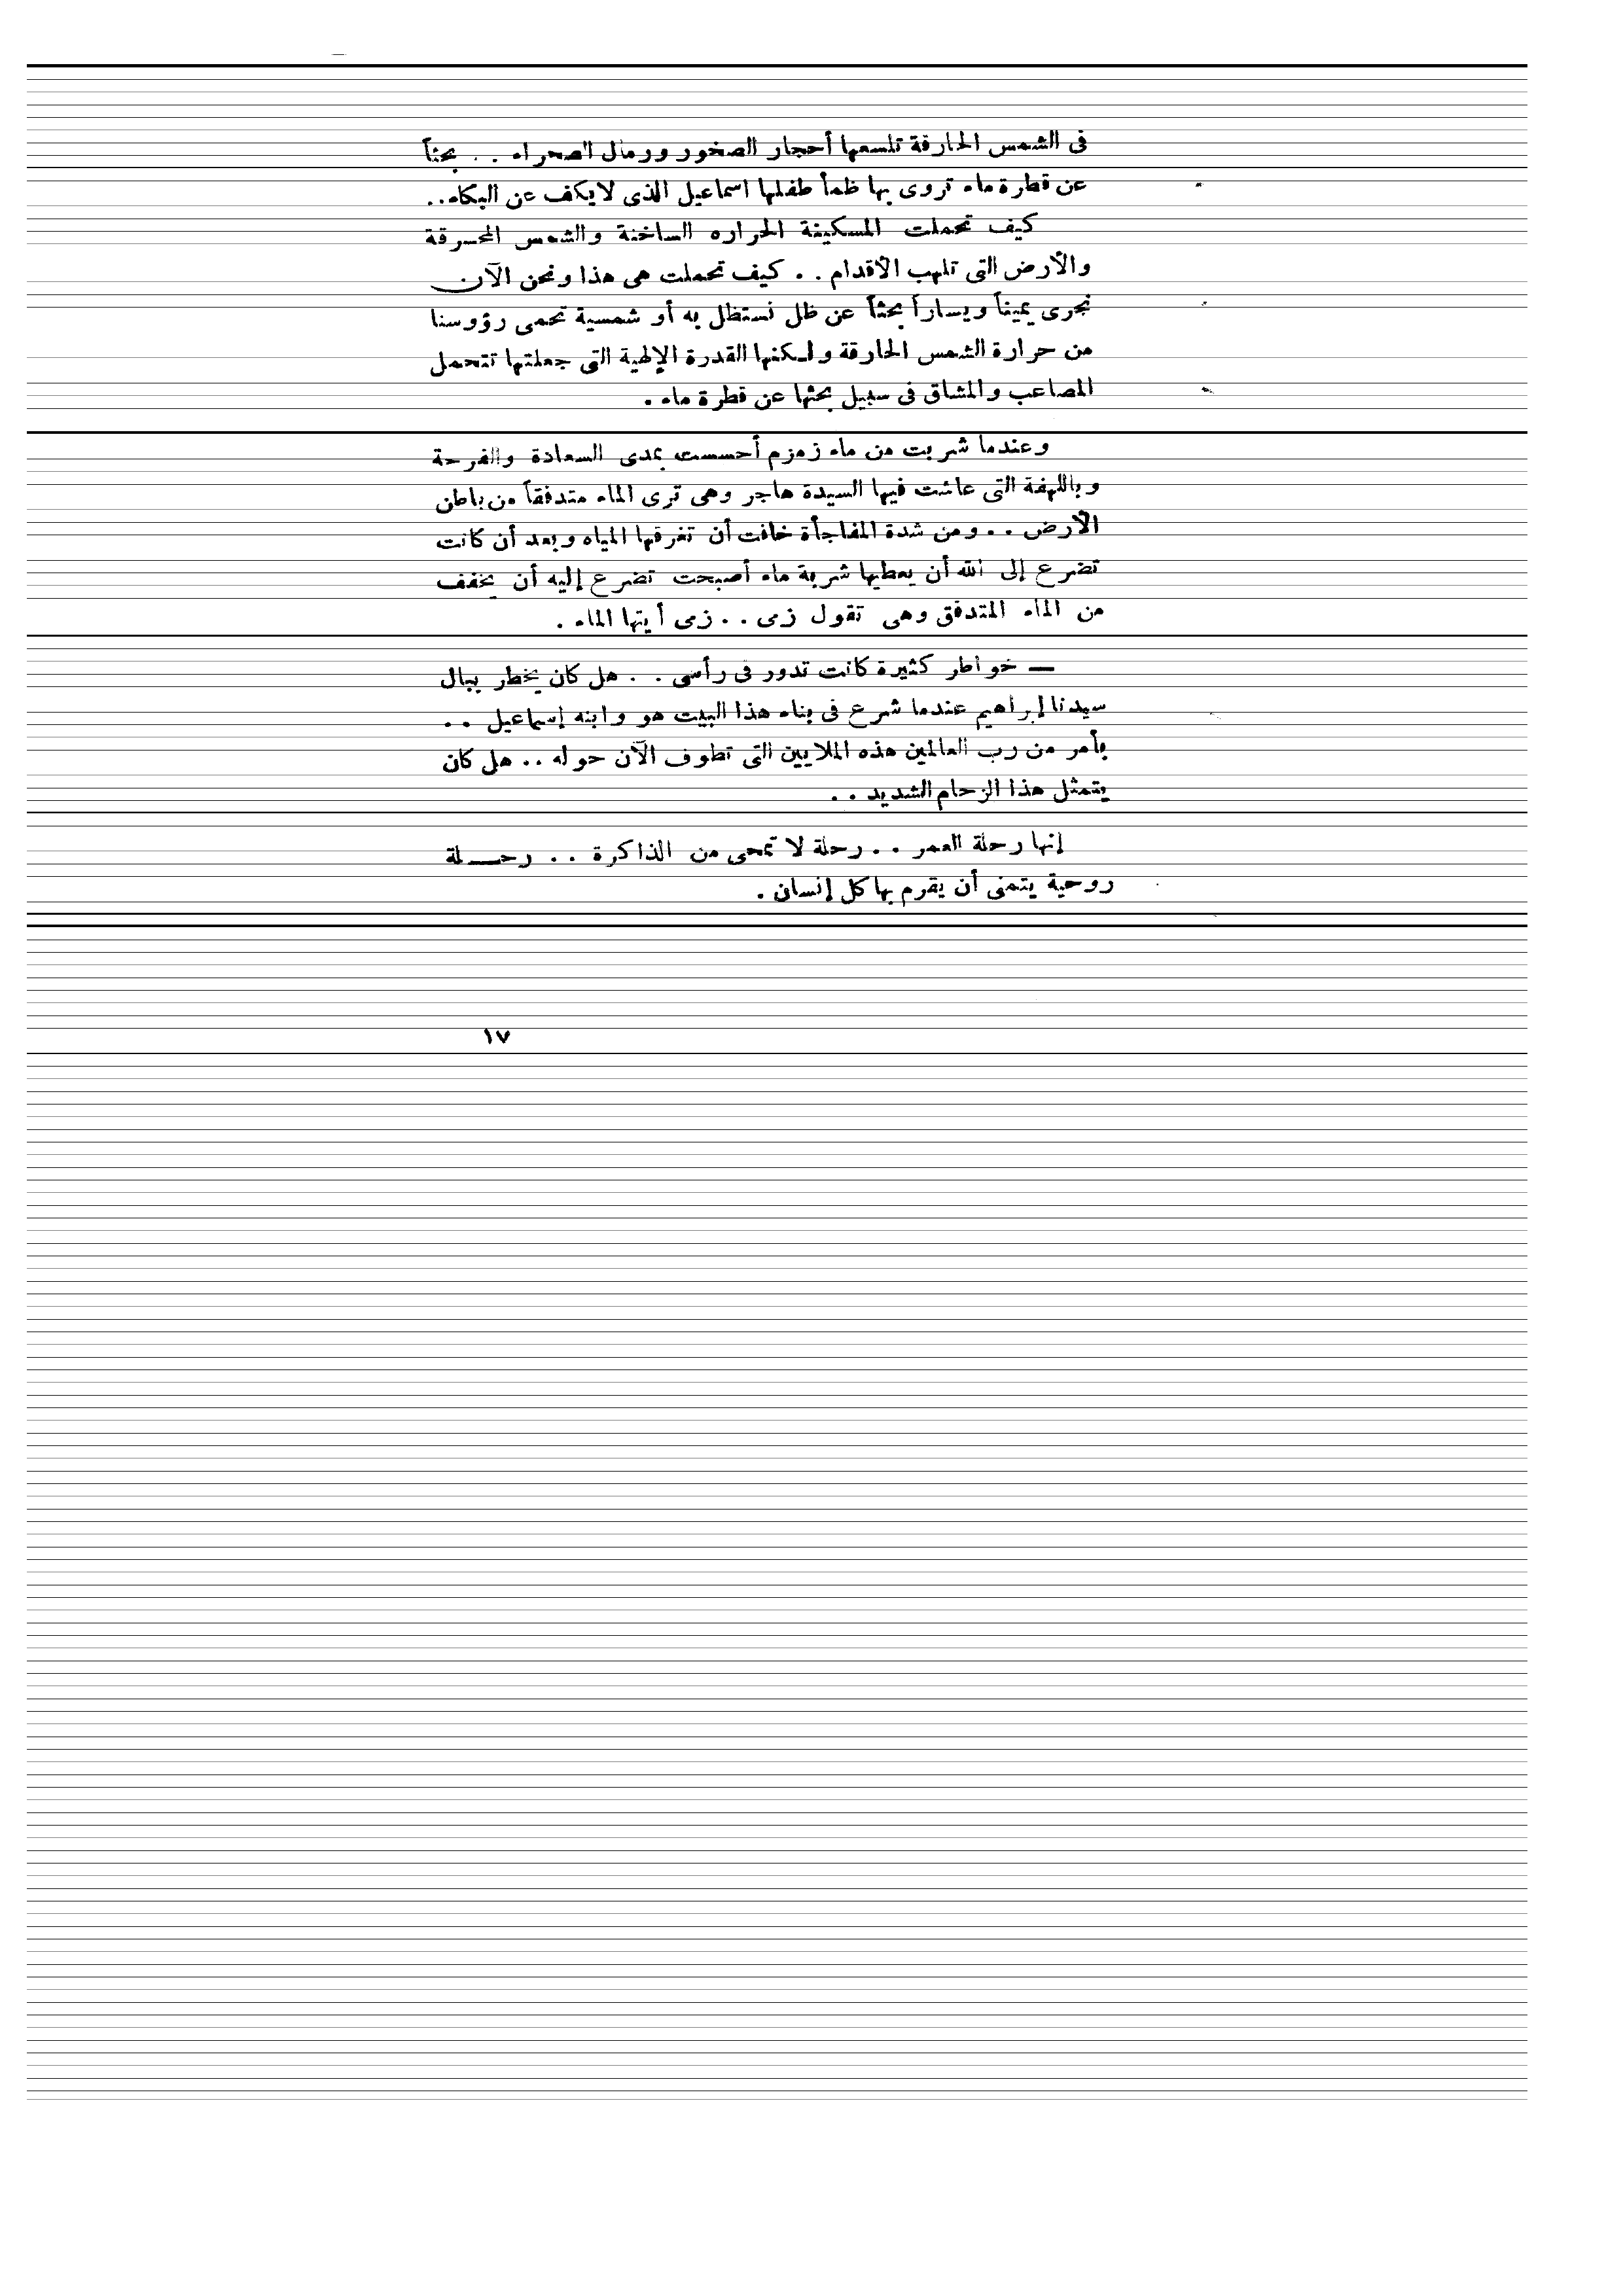 فى الشمس الحارقة تلسعها أحجار الصخور ورمال الصحراء . . بحثاً
عن قطرة ماء تروى بها ظمأ طفلها اسماعيل الذى لايكف عن البكاء..
كيف تحملت المسكينة الحراره الساخنة والشمس المحسرقة
والأرض التى تلهب الأقدام . . كيف تحملت هى هذا ونحن الآن
نجرى يميناً ويساراً بحثاً عن ظل نستظل به أو شمسية تحمى رؤوسنا
من حرارة الشمس الحارقة ولكنها القدرة الإلهية التى جعلتها تتحمل
المصاعب والمشاق فى سبيل بحثها عن قطرة ماء .
وعندما شربت من ماء زمزم أحسست بمدى السعادة والفرحة
وباللهفة التى عاشت فيها السيدة هاجر وهى ترى الماء متدفقاً من باطن
الأرض . . ومن شدة المفاجأة خافت أن تغرقها المياه وبعد أن كانت
تضرع إلى الله أن يعطيها شربة ماء أصبحت تضرع إليه أن يخفف
من الماء المتدفق وهى تقول زمى . . زمى أيتها الماء .
— خواطر كثيرة كانت تدور فى رأسى . . هل كان يخطر ببال
سيدنا إبراهيم عندما شرع فى بناء هذا البيت هو وابنه إسماعيل . .
بأمر من رب العالمين هذه الملايين التى تطوف الآن حوله . . هل كان
يتمثل هذا الزحام الشديد . .
إنها رحلة العمر . . رحلة لا تمحى من الذاكرة . . رحـــلة
روحية يتمنى أن يقرم بها كل إنسان .
١٧